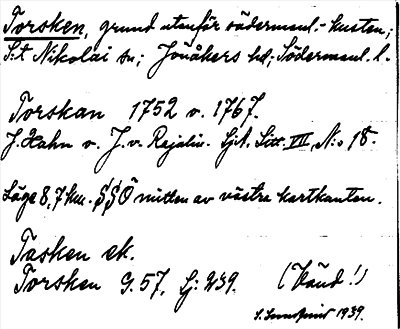 Torsken, grund utanför södermanl.-kusten;
S:t Nikolai sn; Jönåkers hd; Södermanl. l.
Torskan 1752 o. 1767.
J. Hahn o. J. v. Rajalin. Sjk. Litt. VII, N:o 18.
Läge 8,7 km. S§Ö mitten av västra kartkanten.
Tasken ek.
Torsken G. 57, Sj: 239. (Känd!)
1939.